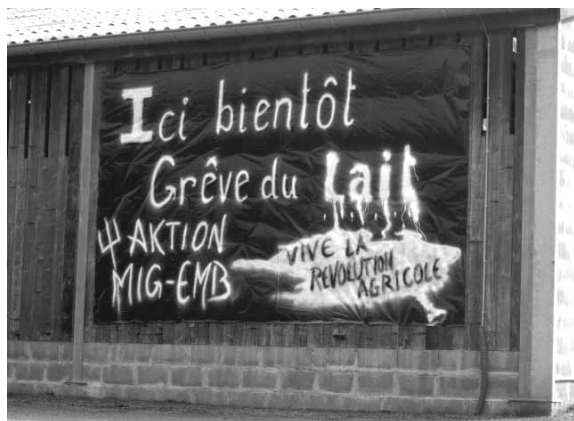 Ici bientôt
Grêve du Lait
AKTION
MIG-EMB
VIVE LA
REVOLUTION
AGRICOLE